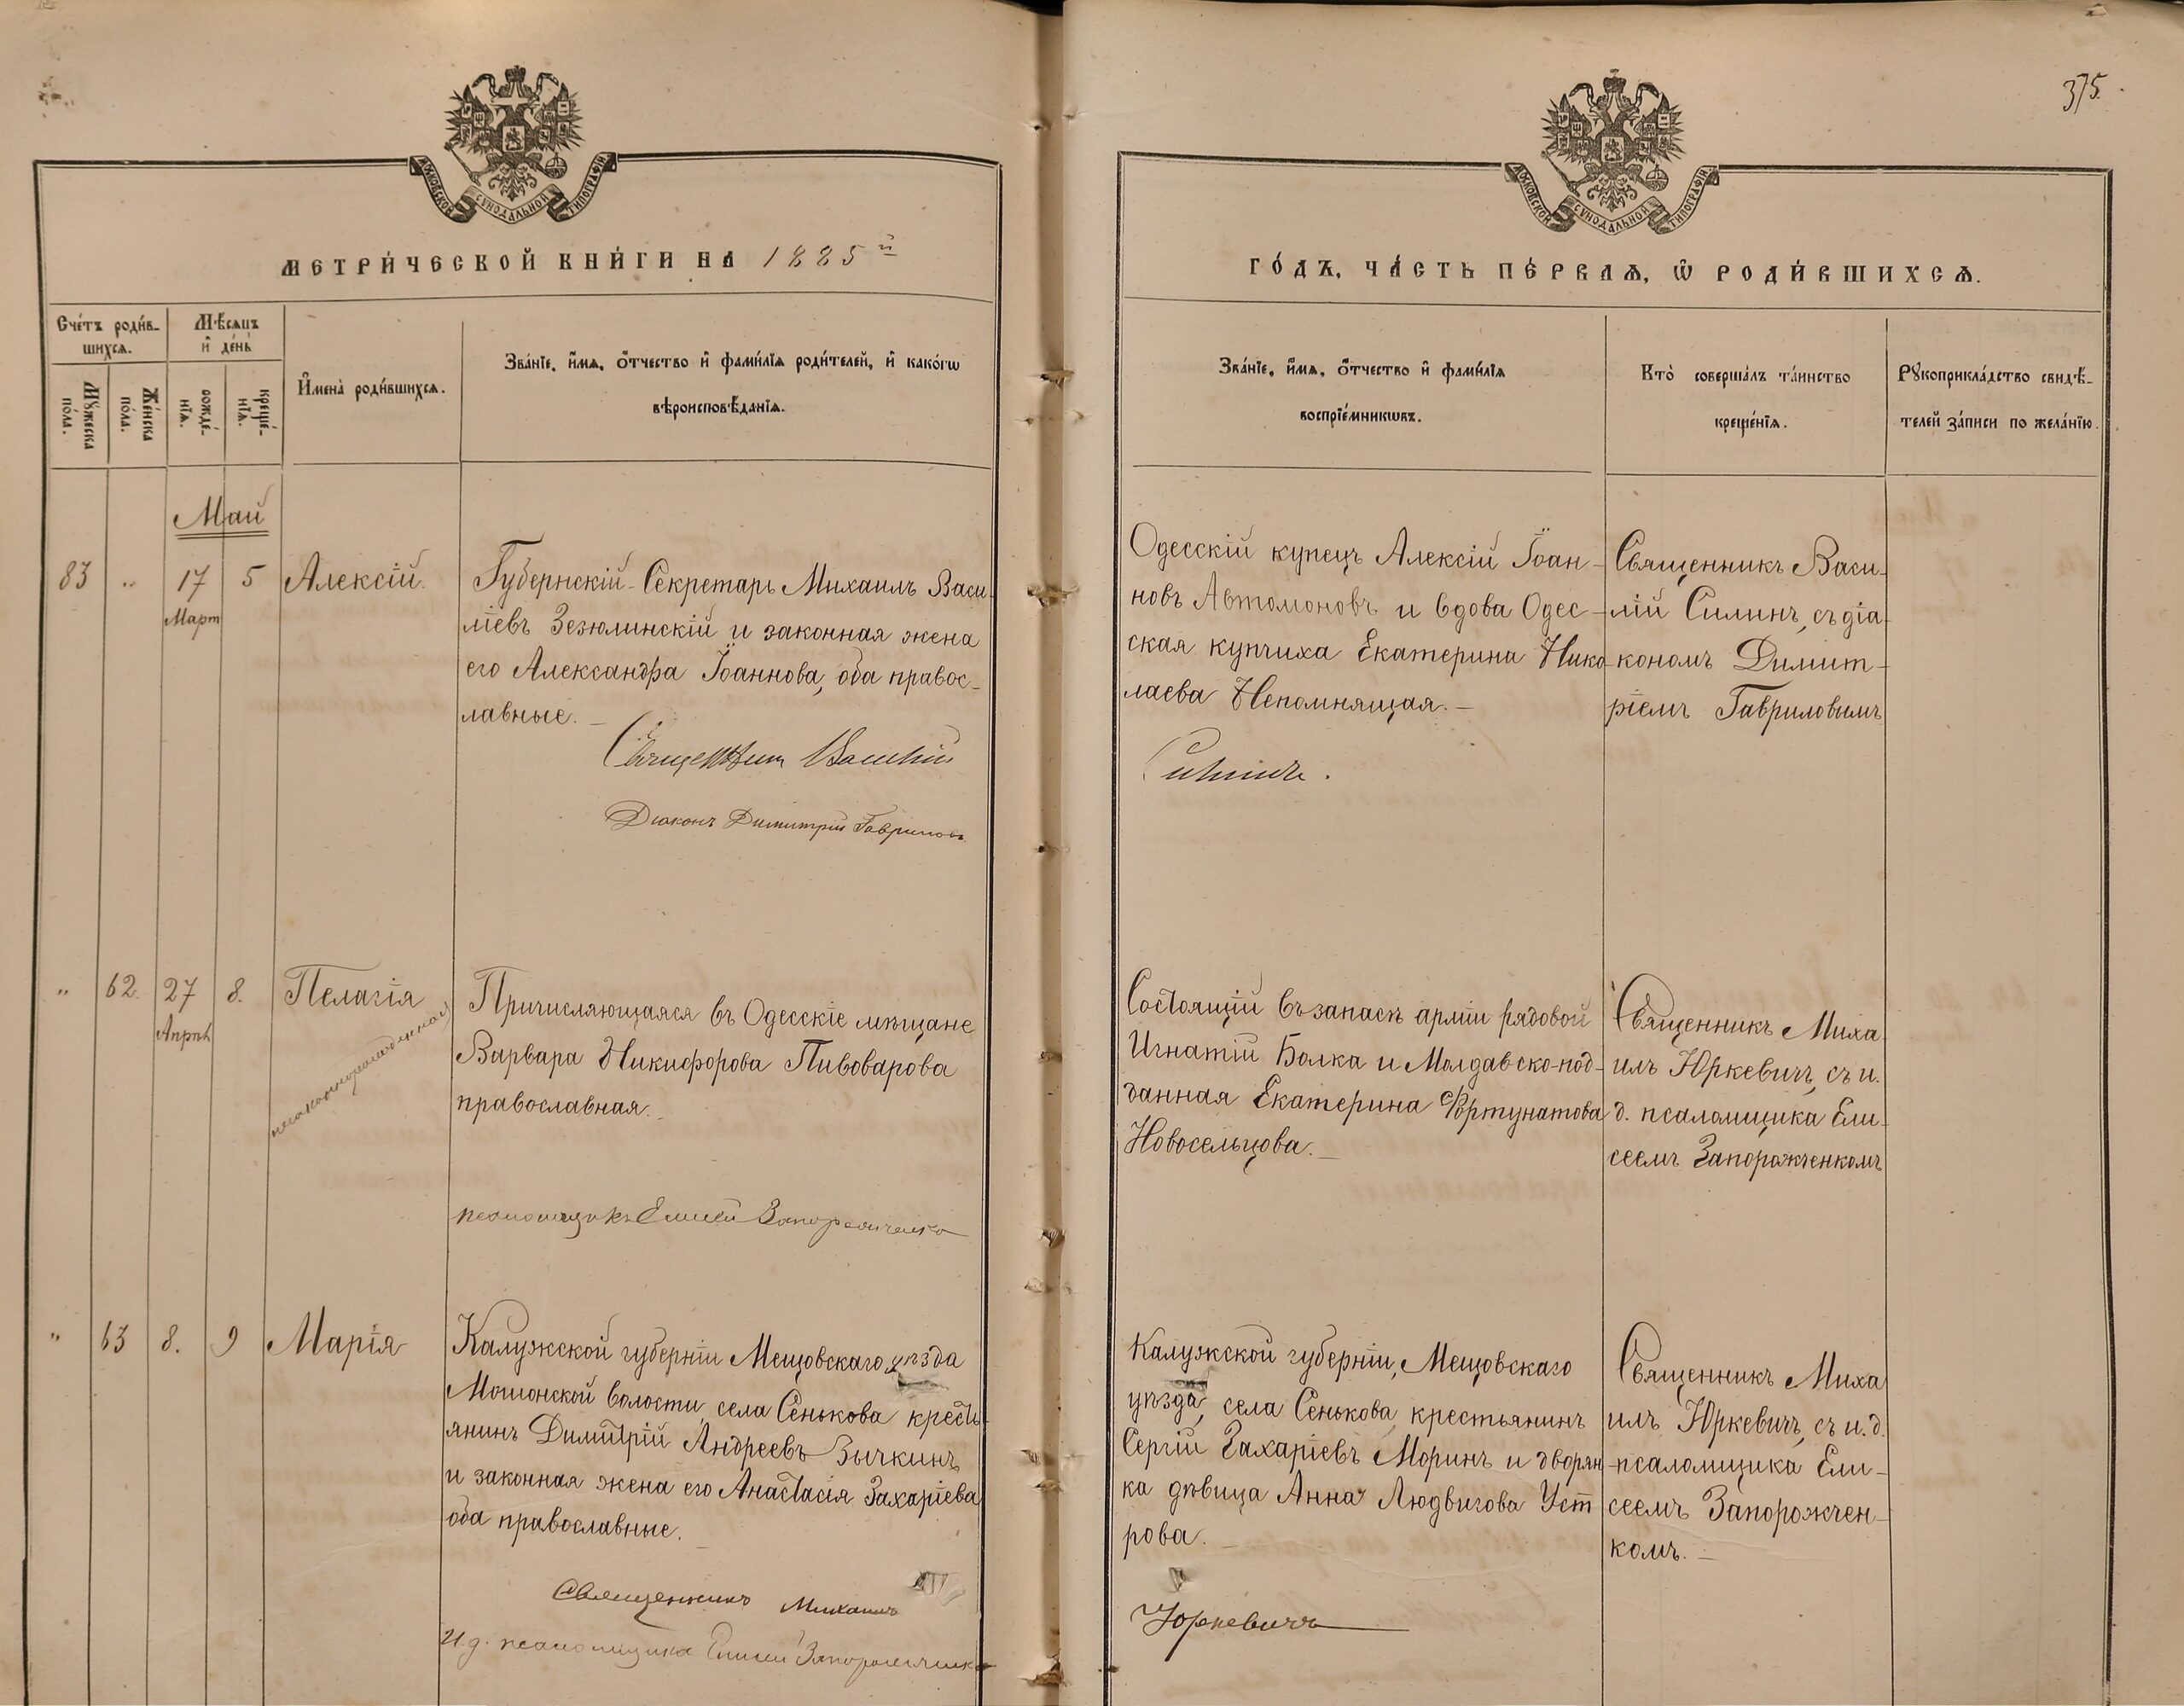 375.
МОСКОВСКОЙ СУНОДАЛЬНОЙ ТИПОГРАФІИ
МОСКОВСКОЙ СУНОДАЛЬНОЙ ТИПОГРАФІИ
МЕТРИ́ЧЕСКОЙ КНИ́ГИ НА 1885й
ГО́ДЪ, ЧА́СТЬ ПЕ́РВАѦ, Ѿ РОДИ́ВШИХСѦ.
Сче́тъ роди́в-
шихсѧ.
Мѣ́сѧцъ
и҆ де́нь
Мꙋ́жеска
по́ла.
Же́нска
по́ла.
рожде́-
нїѧ.
креще́-
нїѧ.
И҆мена̀ роди́вшихсѧ.
Зва́нїе, и҆́мѧ, ѻ҆́тчество и҆ фами́лїѧ роди́телей, и҆ како́гѡ
вѣроисповѣ́данїѧ.
Зва́нїе, и҆́мѧ, ѻ҆́тчество и҆ фами́лїѧ
воспрїе́мникѡвъ.
Кто̀ соверша́лъ та́инство
креще́нїѧ.
Рꙋкоприкла́дство свидѣ́-
телей за́писи по жела́нїю.
Май
83 " 17 5 Алексій.
Март
Губернскій Секретарь Михаилъ Васи-
ліевъ Зезюлинскій и законная жена
его Александра Іоаннова, оба правос-
лавные. –
Священникъ Василій
Диаконъ Димитрій Гавриловъ
Одесскій купецъ Алексій Іоан-
новъ Автомоновъ и вдова Одес-
ская купчиха Екатерина Нико-
лаева Непомнящая. –
Силинъ.
Священникъ Васи-
лій Силинъ, съ діа-
кономъ Димит-
ріемъ Гавриловымъ
" 62. 27 8. Пелагія
Апрѣл
незаконнорожденная
Причисляющаяся въ Одесскіе мѣщане
Варвара Никифорова Пивоварова
православная.
псаломщикъ Елисей Запорожченко
Состоящій въ запасѣ арміи рядовой
Игнатій Болка и Молдавско-под-
данная Екатерина Фортунатова
Новосельцова. –
Священникъ Миха-
илъ Юркевичъ, съ и.
д. псаломщика Ели-
сеемъ Запорожченкомъ
" 63 8. 9 Марія
Калужской губерніи Мещовскаго уѣзда
Мошонской волости, села Сенькова кресть-
янинъ Димитрій Андреевъ Зычкинъ
и законная жена его Анастасія Захаріева
оба православные.
Священникъ Михаилъ
И.д. псаломщика Елисей Запорожченко
Калужской губерніи, Мещовскаго
уѣзда, села Сенькова, крестьянинъ
Сергій Захаріевъ Моринъ и дворян-
ка дѣвица Анна Людвигова Уст
рова. –
Юркевичъ
Священникъ Миха
илъ Юркевичъ, съ и.д.
псаломщика Ели-
сеемъ Запорожчен-
комъ. –